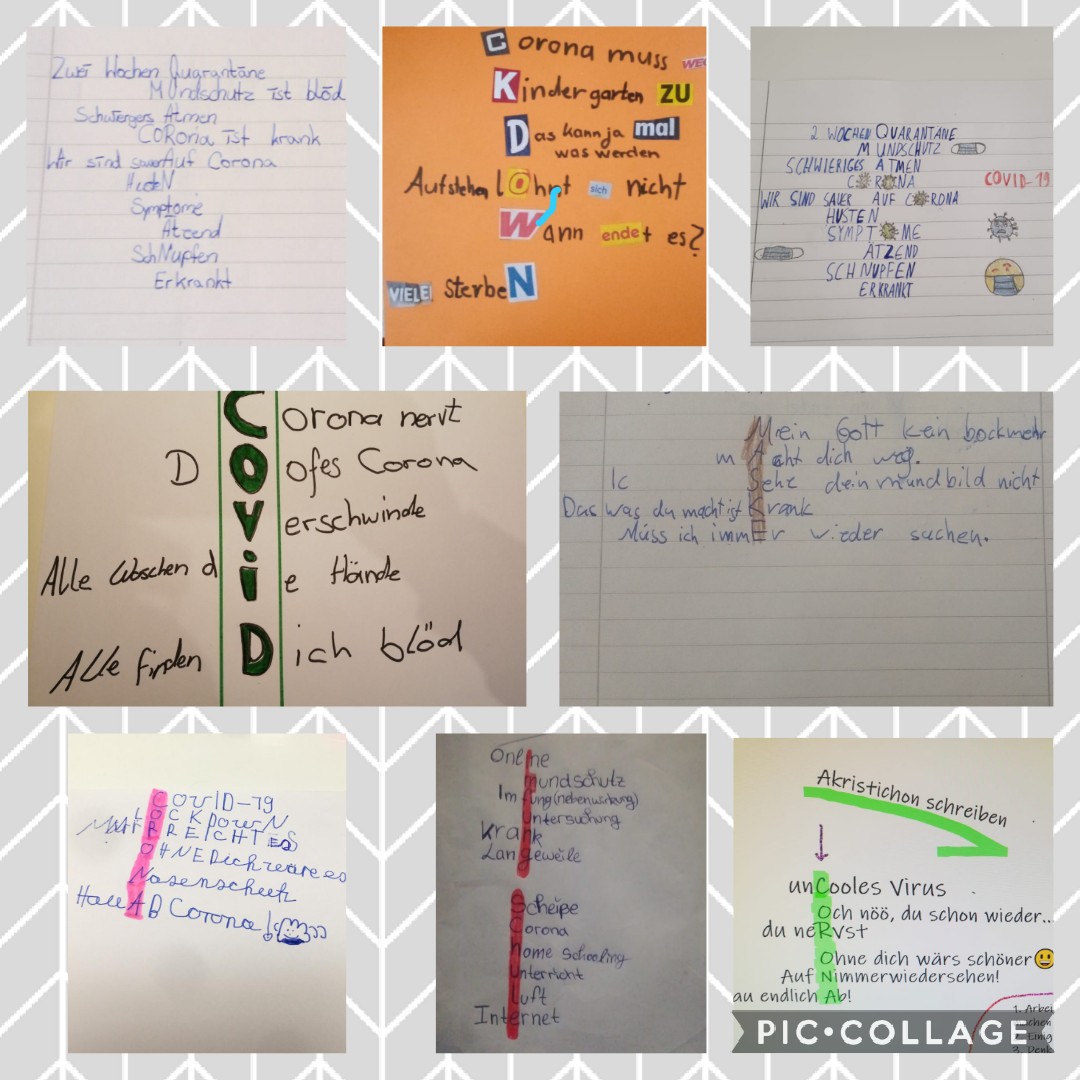 Zwei Wochen Quarantäne
Mundschutz ist blöd
Schwiergers Atmen
CORona ist krank
Wir sind sauer Auf Corona
HusteN
Symptome
Ätzend
SchNupfen
Erkrankt
Corona muss WEG
Kindergarten ZU
Das kann ja mal
was werden
Aufstehen lOhnt sich nicht
Wann endet es?
VIELE sterbeN
2 WOCHEN QUARANTÄNE
MUNDSCHUTZ
SCHWIERIGES ATMEN
CORONA
COVID-19
WIR SIND SAUER AUF CORONA
HUSTEN
SYMPTOME
ÄTZEND
SCHNUPFEN
ERKRANKT
Corona nervt
Doofes Corona
Verschwinde
Alle Waschen die Hände
Alle finden Dich blöd
Mein Gott kein bockmehr
mAcht dich weg.
Ic Sehe dein mundbild nicht
Das was du machst ist Krank
Muss ich immEr wieder suchen.
COVID-19
LOCKDOWN
MIR REICHT ES
OHNE Dich wäre es
Nasenschutz
Hau AB Corona!
Online
mundschutz
Impfung (nebenwirkung)
Untersuchung
Krank
Langeweile
Scheiße
Corona
home schooling
Unterricht
Luft
Internet
Akristichon schreiben
unCooles Virus
Och nöö, du schon wieder...
du neRvst
Ohne dich wärs schöner
Auf Nimmerwiedersehen!
au endlich Ab!
1. Arbei
PIC•COLLAGE